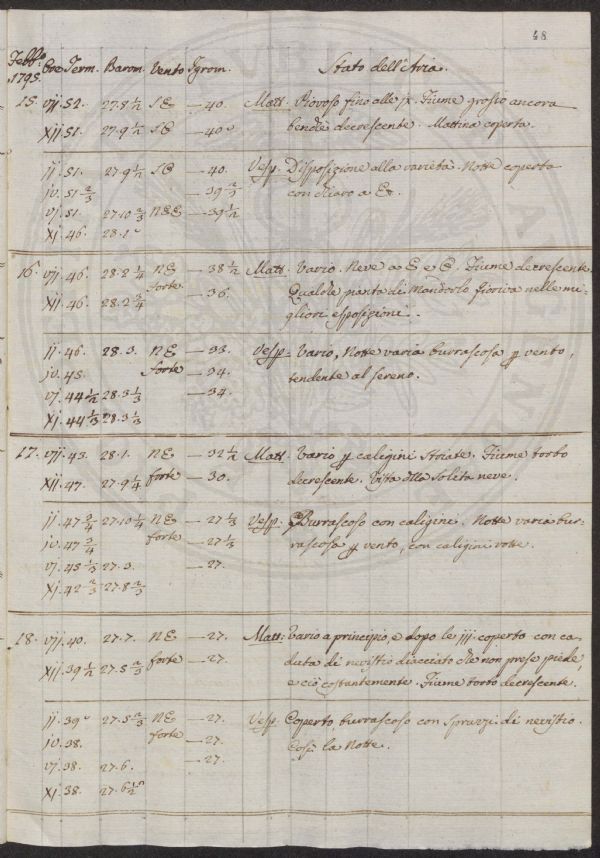 48
Febb.º
1795. Ore Term. Barom. Vento Igrom. Stato dell'Aria.
15. vij. 52. 27.8 ½ SE —40. Matt. Piovoso fino alle jx. Fiume grosso ancora
xij. 51. 27.9 ½ SE —40 bendiè decrescente. Mattina coperta.
ij. 51. 27.9 ½ SE —40. Vesp. Disposizione alla varietà. Notte coperta
iv. 51 ⅔ —39 ⅔ con chiaro a E.
vj. 51. 27.10 ⅔ NEE —39 ½
xj. 46. 28.1
16. vij. 46. 28.2 ¼ NE —38 ½ Matt. Vario. Neve a S e E. Fiume decrescente.
xij. 46. 28.2 ¾ forte —36. Qualche pianta di Mandorlo fioriva nelle mi-
gliori esposizioni.
ij. 46. 28.3. NE —33. Vesp. Vario, Notte varia burrascosa p vento,
iv. 45. forte —34. tendente al sereno.
vj. 44 ½ 28.3 ⅓ —34.
xj. 44 ⅓ 28.3 ⅓
17. vij. 43. 28.1. NE —32 ½ Matt. Vario p caligini striate. Fiume torbo
xij. 47. 27.9 ¼ forte —30. decrescente. Vista della solita neve.
ij. 47 ¾ 27.10 ¼ NE —27 ⅓ Vesp. Burrascoso con caligini. Notte varia bur-
iv. 47 ¾ forte —27 ⅓ rascosa p vento, con caligini rotte.
vj. 45 ⅓ 27.3. —27.
xj. 42 ⅔ 27.8 ⅔
18. vij. 40. 27.7. NE —27. Matt. Vario a principio, e dopo le iij. coperto con ca-
xij. 39 ½ 27.5 ⅔ forte —27. duta di nevistio diacciato che non prese piede,
e ciò costantemente. Fiume torbo decrescente.
ij. 39 27.5 ⅔ NE —27. Vesp. Coperto, burrascoso con sprazzi di nevistio.
iv. 38. forte —27. Così la Notte.
vj. 38. 27.6. —27.
xj. 38. 27.6 ½